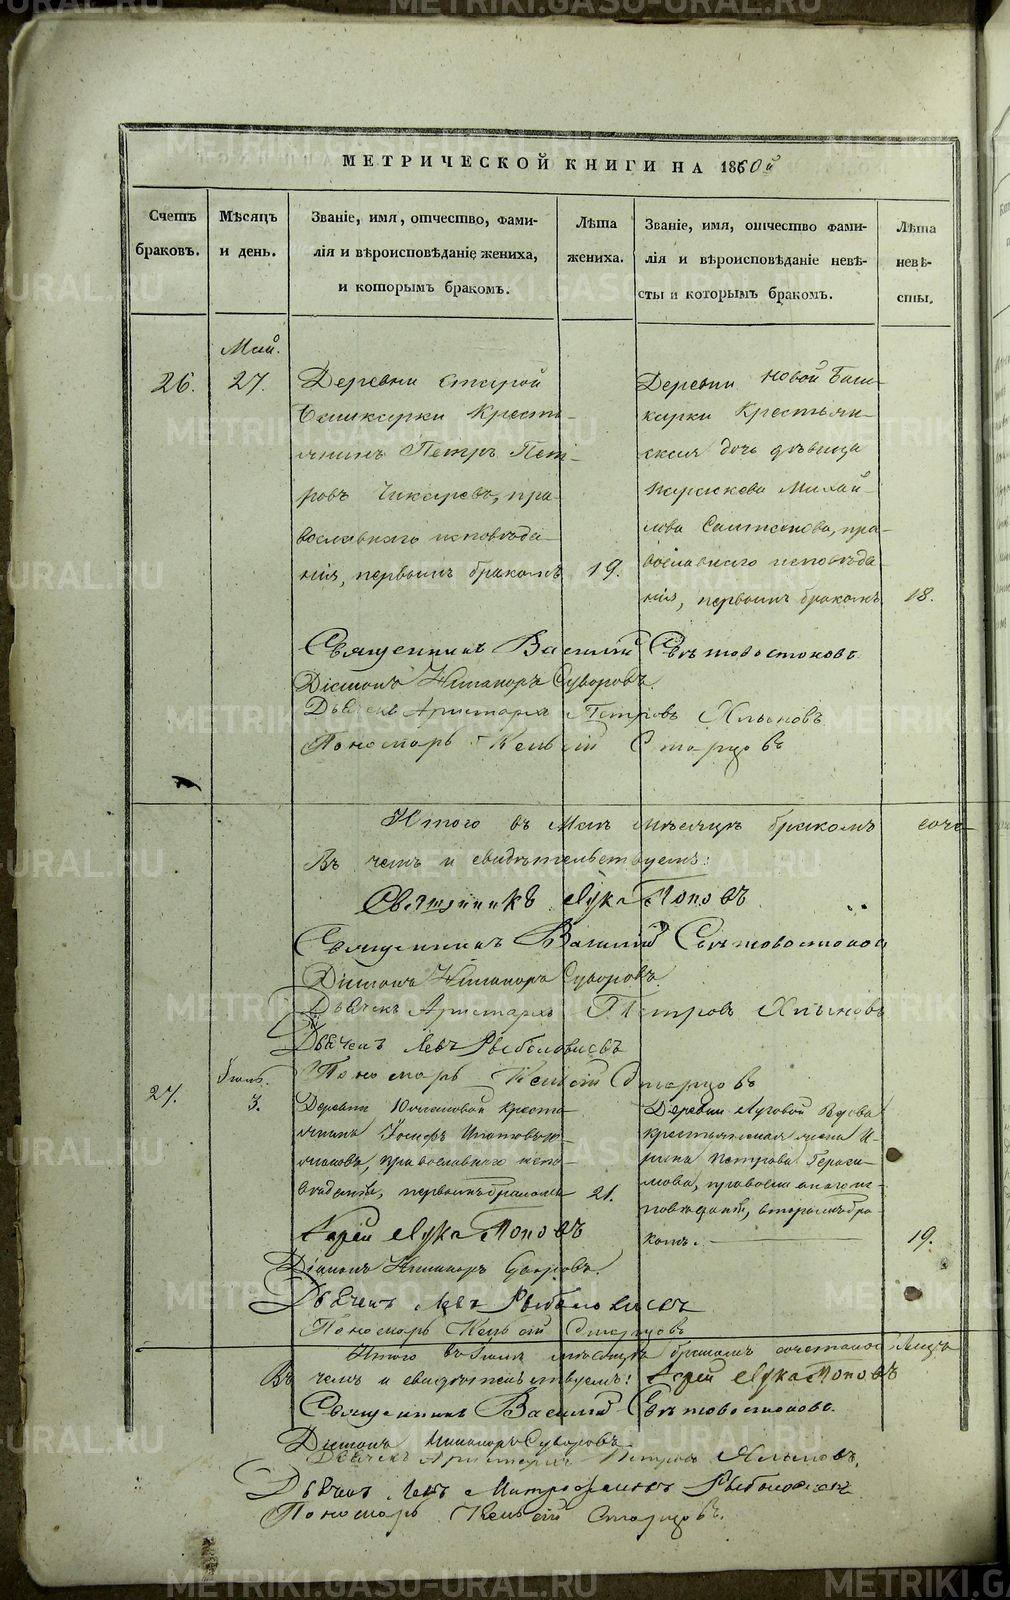 МЕТРИЧЕСКОЙ КНИГИ НА 1860й
Счетъ браковъ.
Мѣсяцъ и день.
Званіе, имя, отчество, фами-
лія и вѣроисповѣданіе жениха,
и которымъ бракомъ.
Лѣта жениха.
Званіе, имя, отчество фами-
лія и вѣроисповѣданіе невѣ-
сты и которымъ бракомъ.
Лѣта невѣ-
сты.
Май.
26.
27.
Деревни Старой
Башкарки Кресть-
янинъ Петръ Пет-
ровъ Чикаревъ, пра-
вославнаго исповѣда-
нія, первымъ бракомъ
19.
Деревни Новой Баш-
карки Крестьян-
ская дочь дѣвица
Параскева Михай-
лова, пра-
вославнаго исповѣда-
нія, первымъ бракомъ
18.
Священникъ Василій Свѣтовостоковъ
Діаконъ Никаноръ Суворовъ.
Дьячекъ Аристархъ Петровъ Хлыновъ
Пономарь Старцовъ
Итого въ Маѣ мѣсяцѣ бракомъ соче-
Въ чемъ и свидѣтельствуемъ:
Священникъ Лука Поповъ
Священникъ Василій Свѣтовостоковъ
Діаконъ Никаноръ Суворовъ.
Дьячекъ Аристархъ Петровъ Хлыновъ
Дьячекъ Левъ Рыболовлевъ
Пономарь Старцовъ
27.
3.
Деревни крестья-
нинъ Іосифъ
православнаго испо-
вѣданія, первымъ бракомъ
21.
Деревни Луговой Вдова
крестьянская жена И-
рина Петрова Гераси-
мова, православнаго ис-
повѣданія, вторымъ бра-
комъ.
19.
Іерей Лука Поповъ
Діаконъ Никаноръ Суворовъ.
Дьячекъ Левъ Рыболовлевъ
Пономарь Старцовъ
Итого въ мѣсяцѣ бракомъ
Въ чемъ и свидѣтельствуемъ: Іерей Лука Поповъ
Священникъ Василій Свѣтовостоковъ.
Діаконъ Никаноръ Суворовъ
Дьячекъ Аристархъ Петровъ Хлыновъ.
Дьячекъ Левъ Митрофановъ Рыболовлевъ
Пономарь Старцовъ.
METRIKI.GASO-URAL.RU